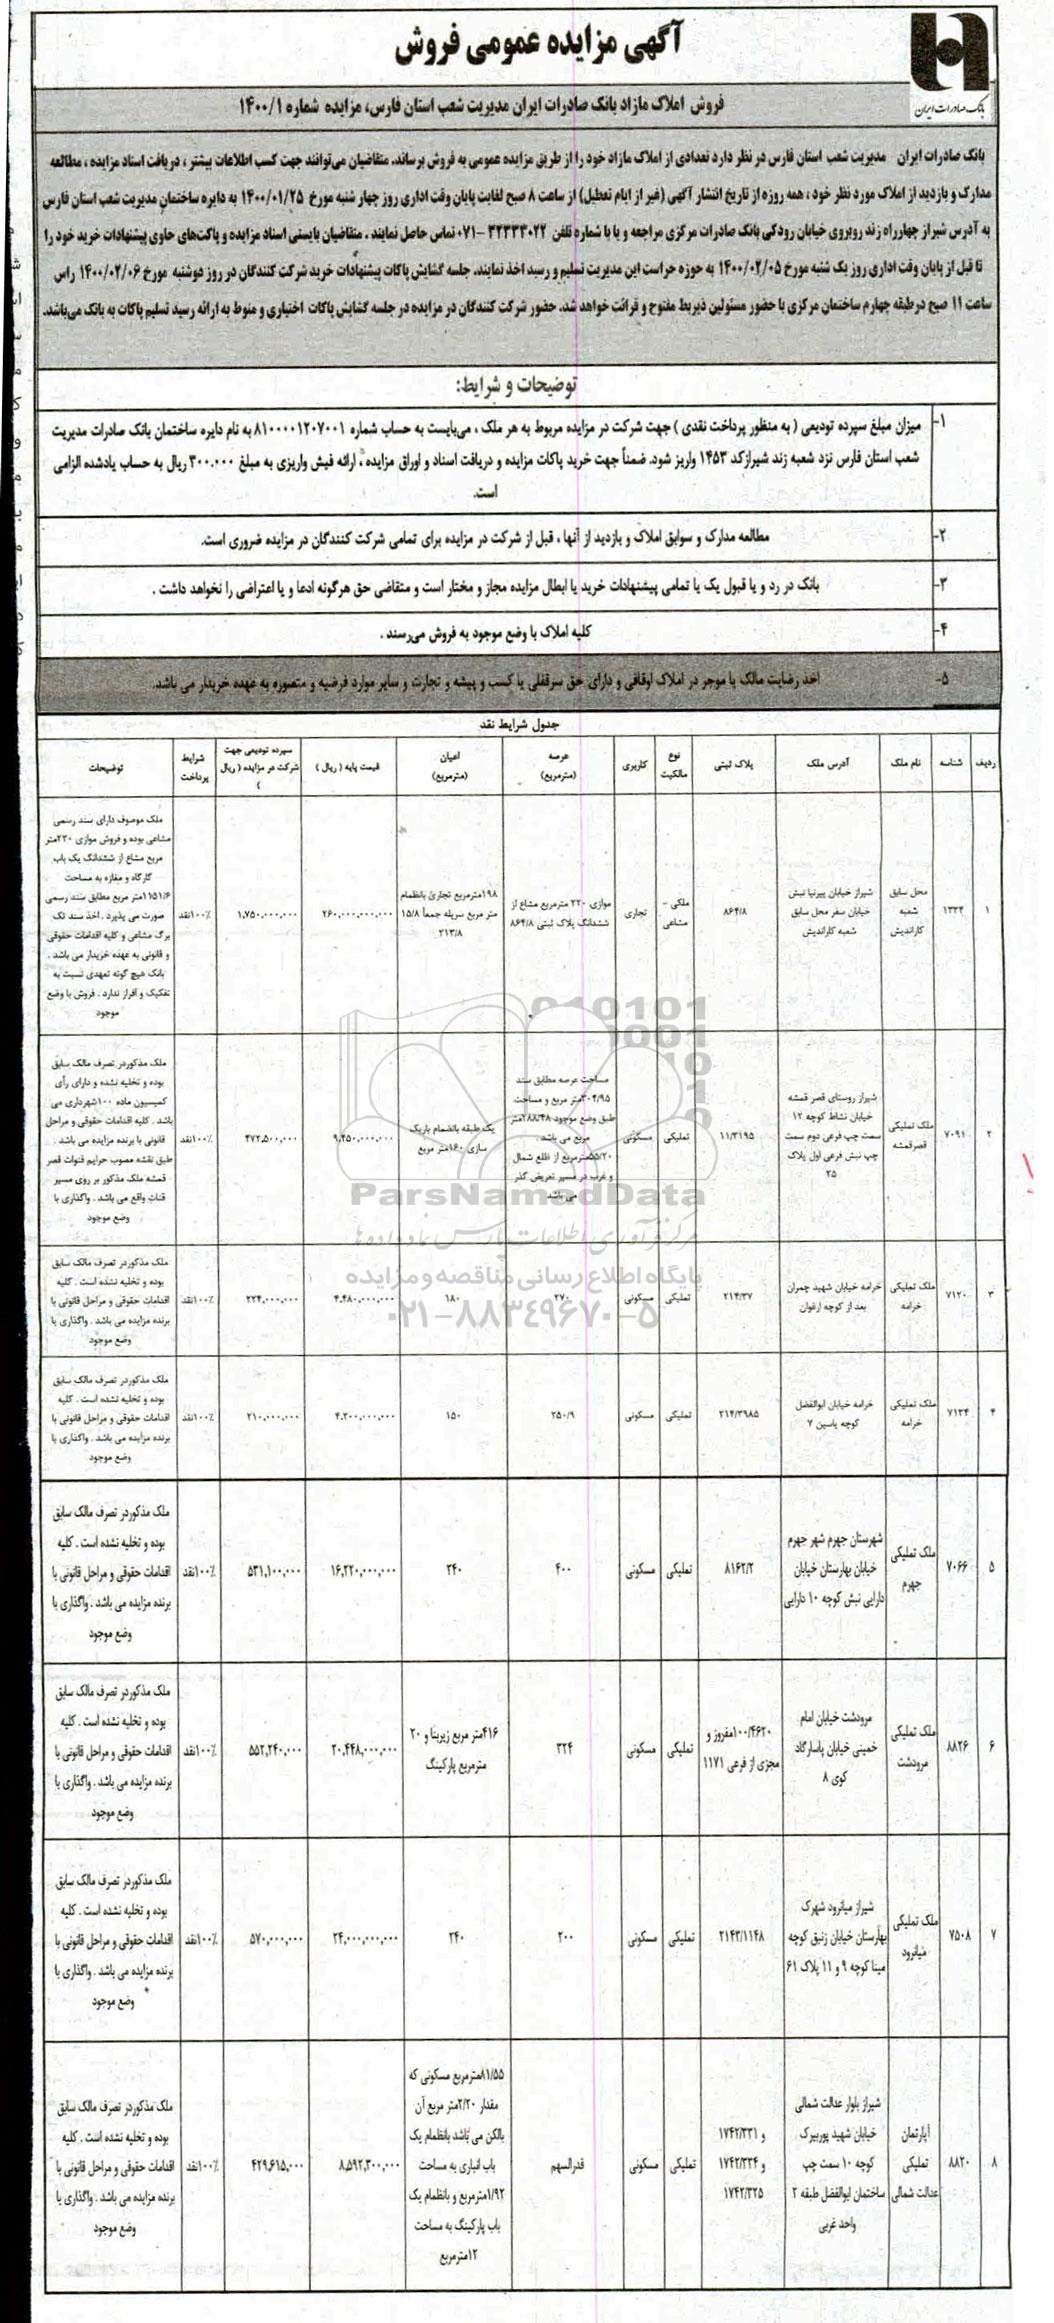 آگهی مزایده عمومی فروش
بانک صادرات ایران
فروش املاک مازاد بانک صادرات ایران مدیریت شعب استان فارس، مزایده شماره ۱۴۰۰/۱
بانک صادرات ایران مدیریت شعب استان فارس در نظر دارد تعدادی از املاک مازاد خود را از طریق مزایده عمومی به فروش برساند. متقاضیان می‌توانند جهت کسب اطلاعات بیشتر ، دریافت اسناد مزایده ، مطالعه
مدارک و بازدید از املاک مورد نظر خود ، همه روزه از تاریخ انتشار آگهی (غیر از ایام تعطیل) از ساعت ۸ صبح لغایت پایان وقت اداری روز چهار شنبه مورخ ۱۴۰۰/۰۱/۲۵ به دایره ساختمان مدیریت شعب استان فارس
به آدرس شیراز چهارراه زند روبروی خیابان رودکی بانک صادرات مرکزی مراجعه و یا با شماره تلفن ۳۲۳۳۳۰۲۲ -۰۷۱ تماس حاصل نمایند . متقاضیان بایستی اسناد مزایده و پاکت‌های حاوی پیشنهادات خرید خود را
تا قبل از پایان وقت اداری روز یک شنبه مورخ ۱۴۰۰/۰۲/۰۵ به حوزه حراست این مدیریت تسلیم و رسید اخذ نمایند. جلسه گشایش پاکات پیشنهادات خرید شرکت کنندگان در روز دوشنبه مورخ ۱۴۰۰/۰۲/۰۶ راس
ساعت ۱۱ صبح در طبقه چهارم ساختمان مرکزی با حضور مسئولین ذیربط مفتوح و قرائت خواهد شد. حضور شرکت کنندگان در مزایده در جلسه گشایش پاکات اختیاری و منوط به ارائه رسید تسلیم پاکات به بانک می‌باشد.
توضیحات و شرایط:
۱- میزان مبلغ سپرده تودیعی ( به منظور پرداخت نقدی ) جهت شرکت در مزایده مربوط به هر ملک ، می‌بایست به حساب شماره ۸۱۰۰۰۰۱۲۰۷۰۰۱ به نام دایره ساختمان بانک صادرات مدیریت
شعب استان فارس نزد شعبه زند شیراز کد ۱۴۵۳ واریز شود. ضمناً جهت خرید پاکات مزایده و دریافت اسناد و اوراق مزایده ، ارائه فیش واریزی به مبلغ ۳۰۰.۰۰۰ ریال به حساب یادشده الزامی
است.
۲- مطالعه مدارک و سوابق املاک و بازدید از آنها ، قبل از شرکت در مزایده برای تمامی شرکت کنندگان در مزایده ضروری است.
۳- بانک در رد و یا قبول یک یا تمامی پیشنهادات خرید یا ابطال مزایده مجاز و مختار است و متقاضی حق هرگونه ادعا و یا اعتراضی را نخواهد داشت .
۴- کلیه املاک با وضع موجود به فروش می‌رسند .
۵- اخذ رضایت مالک یا موجر در املاک اوقافی و دارای حق سرقفلی یا کسب و پیشه و تجارت و سایر موارد فرضیه و متصوره به عهده خریدار می باشد.
جدول شرایط نقد
ردیف شناسه نام ملک آدرس ملک پلاک ثبتی نوع مالکیت کاربری عرصه (مترمربع) اعیان (مترمربع) قیمت پایه ( ریال ) سپرده تودیعی جهت شرکت در مزایده ( ریال ) شرایط پرداخت توضیحات
۱ ۱۳۳۴ محل سابق شعبه کاراندیش شیراز خیابان پیرنیا نبش خیابان سفر محل سابق شعبه کاراندیش ۸۶۴/۸ ملکی - مشاعی تجاری موازی ۲۲۰ مترمربع مشاع از ششدانگ پلاک ثبتی ۸۶۴/۸ ۱۹۸مترمربع تجاری بانظمام ۱۵/۸ متر مربع سرپله جمعاً ۲۱۳/۸ ۲۶۰,۰۰۰,۰۰۰,۰۰۰ ۱,۷۵۰,۰۰۰,۰۰۰ ۱۰۰٪نقد ملک موصوف دارای سند رسمی مشاعی بوده و فروش موازی ۲۲۰متر مربع مشاع از ششدانگ یک باب کارگاه و مغازه به مساحت ۱۱۵۱/۶متر مربع مطابق سند رسمی صورت می پذیرد . اخذ سند تک برگ مشاعی و کلیه اقدامات حقوقی و قانونی به عهده خریدار می باشد . بانک هیچ گونه تعهدی نسبت به تفکیک و افراز ندارد . فروش با وضع موجود
۲ ۷۰۹۱ ملک تملیکی قصرقمشه شیراز روستای قصر قمشه خیابان نشاط کوچه ۱۲ سمت چپ فرعی دوم سمت چپ نبش فرعی اول پلاک ۲۵ ۱۱/۳۱۹۵ تملیکی مسکونی مساحت عرصه مطابق سند ۳۰۴/۹۵متر مربع و مساحت طبق وضع موجود ۲۸۸/۴۸متر مربع می باشد . ۵۵/۲۰مترمربع از ظلع شمال و غرب در مسیر تعریض گذر می باشد یک طبقه بانضمام باریک سازی ۱۶۰متر مربع ۹,۴۵۰,۰۰۰,۰۰۰ ۴۷۲,۵۰۰,۰۰۰ ۱۰۰٪نقد ملک مذکوردر تصرف مالک سابق بوده و تخلیه نشده و دارای رأی کمیسیون ماده ۱۰۰شهرداری می باشد . کلیه اقدامات حقوقی و مراحل قانونی با برنده مزایده می باشد . طبق نقشه مصوب حرایم قنوات قصر قمشه ملک مذکور بر روی مسیر قنات واقع می باشد . واگذاری با وضع موجود
۳ ۷۱۲۰ ملک تملیکی خرامه خرامه خیابان شهید چمران بعد از کوچه ارغوان ۲۱۴/۳۷ تملیکی مسکونی ۲۷۰ ۱۸۰ ۴,۴۸۰,۰۰۰,۰۰۰ ۲۲۴,۰۰۰,۰۰۰ ۱۰۰٪نقد ملک مذکوردر تصرف مالک سابق بوده و تخلیه نشده است . کلیه اقدامات حقوقی و مراحل قانونی با برنده مزایده می باشد . واگذاری با وضع موجود
۴ ۷۱۳۴ ملک تملیکی خرامه خرامه خیابان ابوالفضل کوچه یاسین ۷ ۲۱۴/۳۹۸۵ تملیکی مسکونی ۲۵۰/۹ ۱۵۰ ۴,۲۰۰,۰۰۰,۰۰۰ ۲۱۰,۰۰۰,۰۰۰ ۱۰۰٪نقد ملک مذکوردر تصرف مالک سابق بوده و تخلیه نشده است . کلیه اقدامات حقوقی و مراحل قانونی با برنده مزایده می باشد . واگذاری با وضع موجود
۵ ۷۰۶۶ ملک تملیکی جهرم شهرستان جهرم شهر جهرم خیابان بهارستان خیابان دارایی نبش کوچه ۱۰ دارایی ۸۱۶۲/۲ تملیکی مسکونی ۴۰۰ ۲۴۰ ۱۶,۲۲۰,۰۰۰,۰۰۰ ۵۳۱,۱۰۰,۰۰۰ ۱۰۰٪نقد ملک مذکوردر تصرف مالک سابق بوده و تخلیه نشده است . کلیه اقدامات حقوقی و مراحل قانونی با برنده مزایده می باشد . واگذاری با وضع موجود
۶ ۸۸۲۶ ملک تملیکی مرودشت مرودشت خیابان امام خمینی خیابان پاسارگاد کوی ۸ ۱۰۰/۴۶۲۰مفروز و مجزی از فرعی ۱۱۷۱ تملیکی مسکونی ۳۲۴ ۴۱۶متر مربع زیربنا و ۲۰ مترمربع پارکینگ ۲۰,۴۴۸,۰۰۰,۰۰۰ ۵۵۲,۲۴۰,۰۰۰ ۱۰۰٪نقد ملک مذکوردر تصرف مالک سابق بوده و تخلیه نشده است . کلیه اقدامات حقوقی و مراحل قانونی با برنده مزایده می باشد . واگذاری با وضع موجود
۷ ۷۵۰۸ ملک تملیکی میانرود شیراز میانرود شهرک بهارستان خیابان زنبق کوچه مینا کوچه ۹ و ۱۱ پلاک ۶۱ ۲۱۴۳/۱۱۴۸ تملیکی مسکونی ۲۰۰ ۲۴۰ ۲۴,۰۰۰,۰۰۰,۰۰۰ ۵۷۰,۰۰۰,۰۰۰ ۱۰۰٪نقد ملک مذکوردر تصرف مالک سابق بوده و تخلیه نشده است . کلیه اقدامات حقوقی و مراحل قانونی با برنده مزایده می باشد . واگذاری با وضع موجود
۸ ۸۸۲۰ آپارتمان تملیکی عدالت شمالی شیراز بلوار عدالت شمالی خیابان شهید پوربیرک کوچه ۱۰ سمت چپ ساختمان ابوالفضل طبقه ۲ واحد غربی ۱۷۴۲/۳۳۱ و ۱۷۴۲/۳۳۴ و ۱۷۴۲/۳۲۵ تملیکی مسکونی قدرالسهم ۸۱/۵۵مترمربع مسکونی که مقدار ۲/۲۰متر مربع آن بالکن می باشد بانظمام یک باب انباری به مساحت ۱/۹۲مترمربع و بانظمام یک باب پارکینگ به مساحت ۱۲مترمربع ۸,۵۹۲,۳۰۰,۰۰۰ ۴۲۹,۶۱۵,۰۰۰ ۱۰۰٪نقد ملک مذکوردر تصرف مالک سابق بوده و تخلیه نشده است . کلیه اقدامات حقوقی و مراحل قانونی با برنده مزایده می باشد . واگذاری با وضع موجود
ParsNamadData
مرکز فرآوری اطلاعات پارس نماد داده ها
پایگاه اطلاع رسانی مناقصه و مزایده
۰۲۱-۸۸۳۴۹۶۷۰-۵